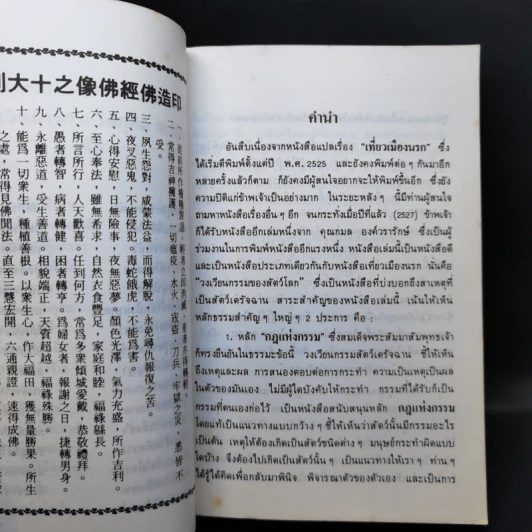 印造佛經佛像之十大利
一、從前所作種種罪過，輕者立即消滅，重者亦得轉輕。
二、常得吉神擁護，一切瘟疫、水火、寇盜、刀兵、牢獄之災，悉皆不
受。
三、夙生怨對，咸蒙法益，而得解脫，永免尋仇報復之苦。
四、夜叉惡鬼，不能侵犯。毒蛇餓虎，不能爲害。
五、心得安慰，日無險事，夜無惡夢。顏色光澤，氣力充盛，所作吉利。
六、至心奉法，雖無希求，自然衣食豐足，家庭和睦，福祿縣長。
七、所言所行，人天歡喜。任到何方，常爲多衆傾城愛戴，恭敬禮拜。
八、愚者轉智，病者轉健，困者轉亨。爲婦女者，報謝之日，捷轉男身。
九、永離惡道，受生善道。相貌端正，天資超越，福祿殊勝。
十、能爲一切衆生，種植善根。以衆生心，作大福田，獲無量勝果。所生
之處，常得見佛聞法。直至三慧宏開，六通親證，速得成佛。
คำนำ
อันสืบเนื่องจากหนังสือแปลเรื่อง "เที่ยวเมืองนรก" ซึ่ง
ได้เริ่มตีพิมพ์ตั้งแต่ปี พ.ศ. 2525 และยังคงพิมพ์ต่อ ๆ กันมาอีก
หลายครั้งแล้วก็ตาม ก็ยังคงมีผู้สนใจอยากจะให้พิมพ์ขึ้นอีก ซึ่งยัง
ความปิติแก่ข้าพเจ้าเป็นอย่างมาก ในระยะหลังๆ นี้มีผู้สนใจไต่
ถามหาหนังสือเรื่องอื่น ๆ อีก จนกระทั่งเมื่อปีที่แล้ว (2527) ข้าพเจ้า
ก็ได้รับหนังสืออีกเล่มหนึ่งจาก คุณกมล องค์วรารักษ์ ซึ่งเป็นผู้
ร่วมงานในการพิมพ์หนังสืออีกท่านหนึ่ง หนังสือเล่มนี้เป็นหนังสือดี
และเป็นหนังสือประเภทเดียวกันกับหนังสือเที่ยวเมืองนรก นั่นคือ
"วงเวียนกรรมของสัตว์โลก" ซึ่งเป็นหนังสือที่บ่งบอกถึงสาเหตุที่
เป็นสัตว์เดรัจฉาน สาระสำคัญของหนังสือเล่มนี้ เน้นให้เห็น
หลักกรรมสำคัญ ๆ ใหญ่ ๆ 2 ประการ คือ :
1. หลัก "กฎแห่งกรรม" ซึ่งสมเด็จพระสัมมาสัมพุทธเจ้า
ก็ทรงยืนยันในธรรมะข้อนี้ วงเวียนกรรมสัตว์เดรัจฉาน ชี้ให้เห็นถึง
เหตุและผล การสนองตอบต่อการกระทำ ความเป็นเหตุเป็นผล
ในตัวของมันเอง ไม่มีผู้ใดบังคับให้กระทำ กรรมที่ได้รับก็เป็น
กรรมที่ตนเองก่อไว้ เป็นหนังสือสนับสนุนหลัก กฎแห่งกรรม
โดยแท้เป็นแนวทางแบบกว้างๆ ชี้ให้เห็นว่าสัตว์นั้นมีกรรมอะไร
เป็นต้น เหตุให้ต้องเกิดเป็นสัตว์ชนิดต่างๆ มนุษย์กระทำผิดแบบ
ใดบ้าง จึงต้องไปเกิดเป็นสัตว์นั้น ๆ เป็นแนวทางให้เรา ๆ ท่าน ๆ
ได้รู้ได้คิดเพื่อกลับมาพินิจ พิจารณาตัวของตัวเอง และเป็นการ